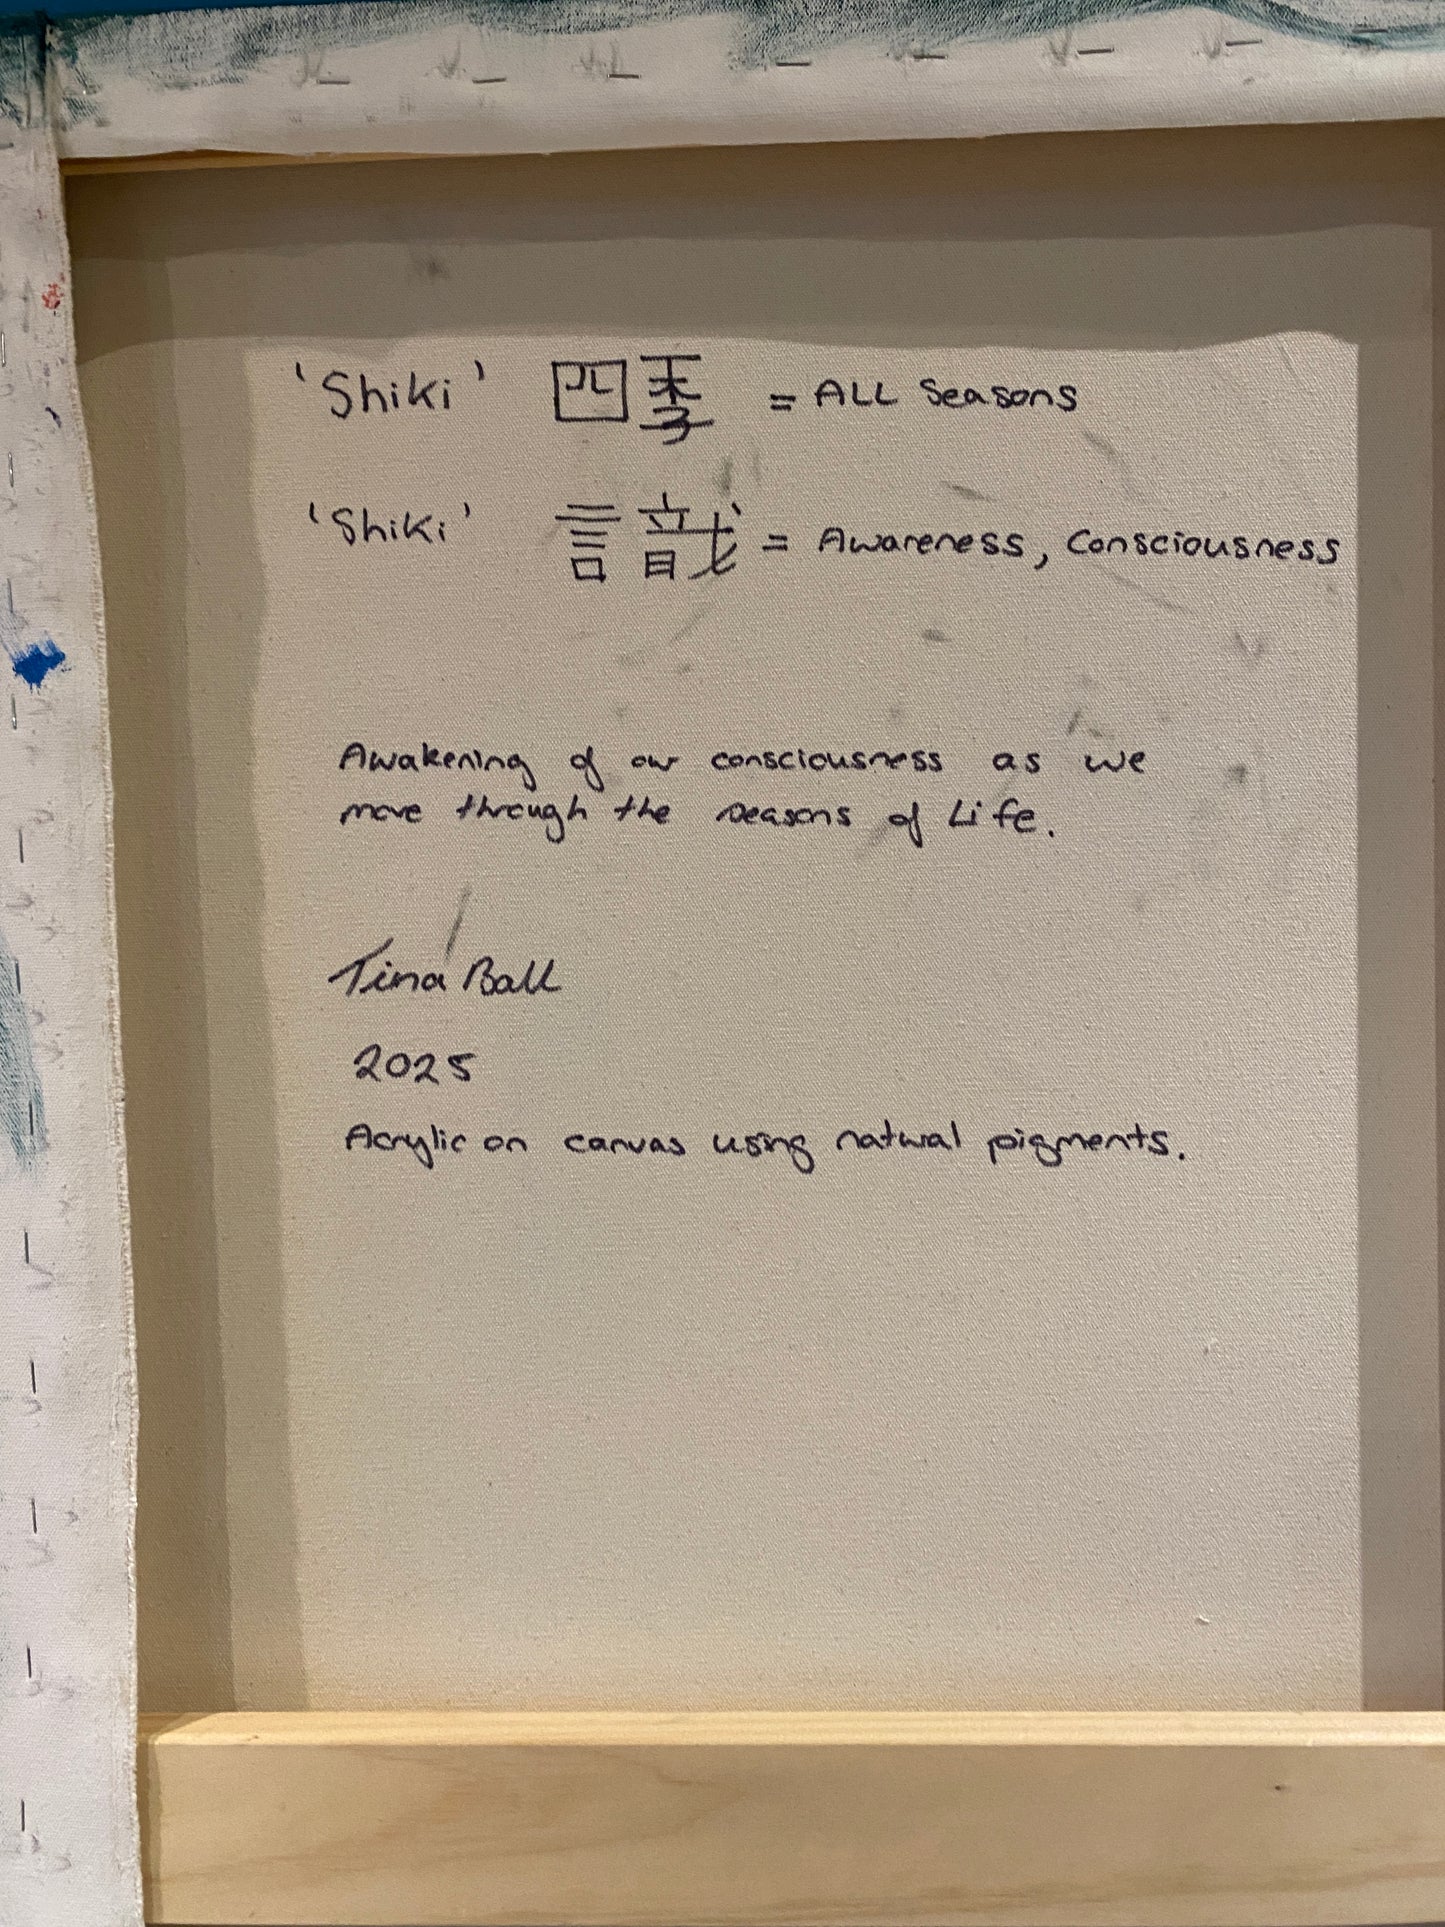 'Shiki' 四季 = ALL Seasons
'Shiki' 識 = Awareness, Consciousness
Awakening of our consciousness as we
move through the seasons of Life.
Tina Ball
2025
Acrylic on canvas using natural pigments.